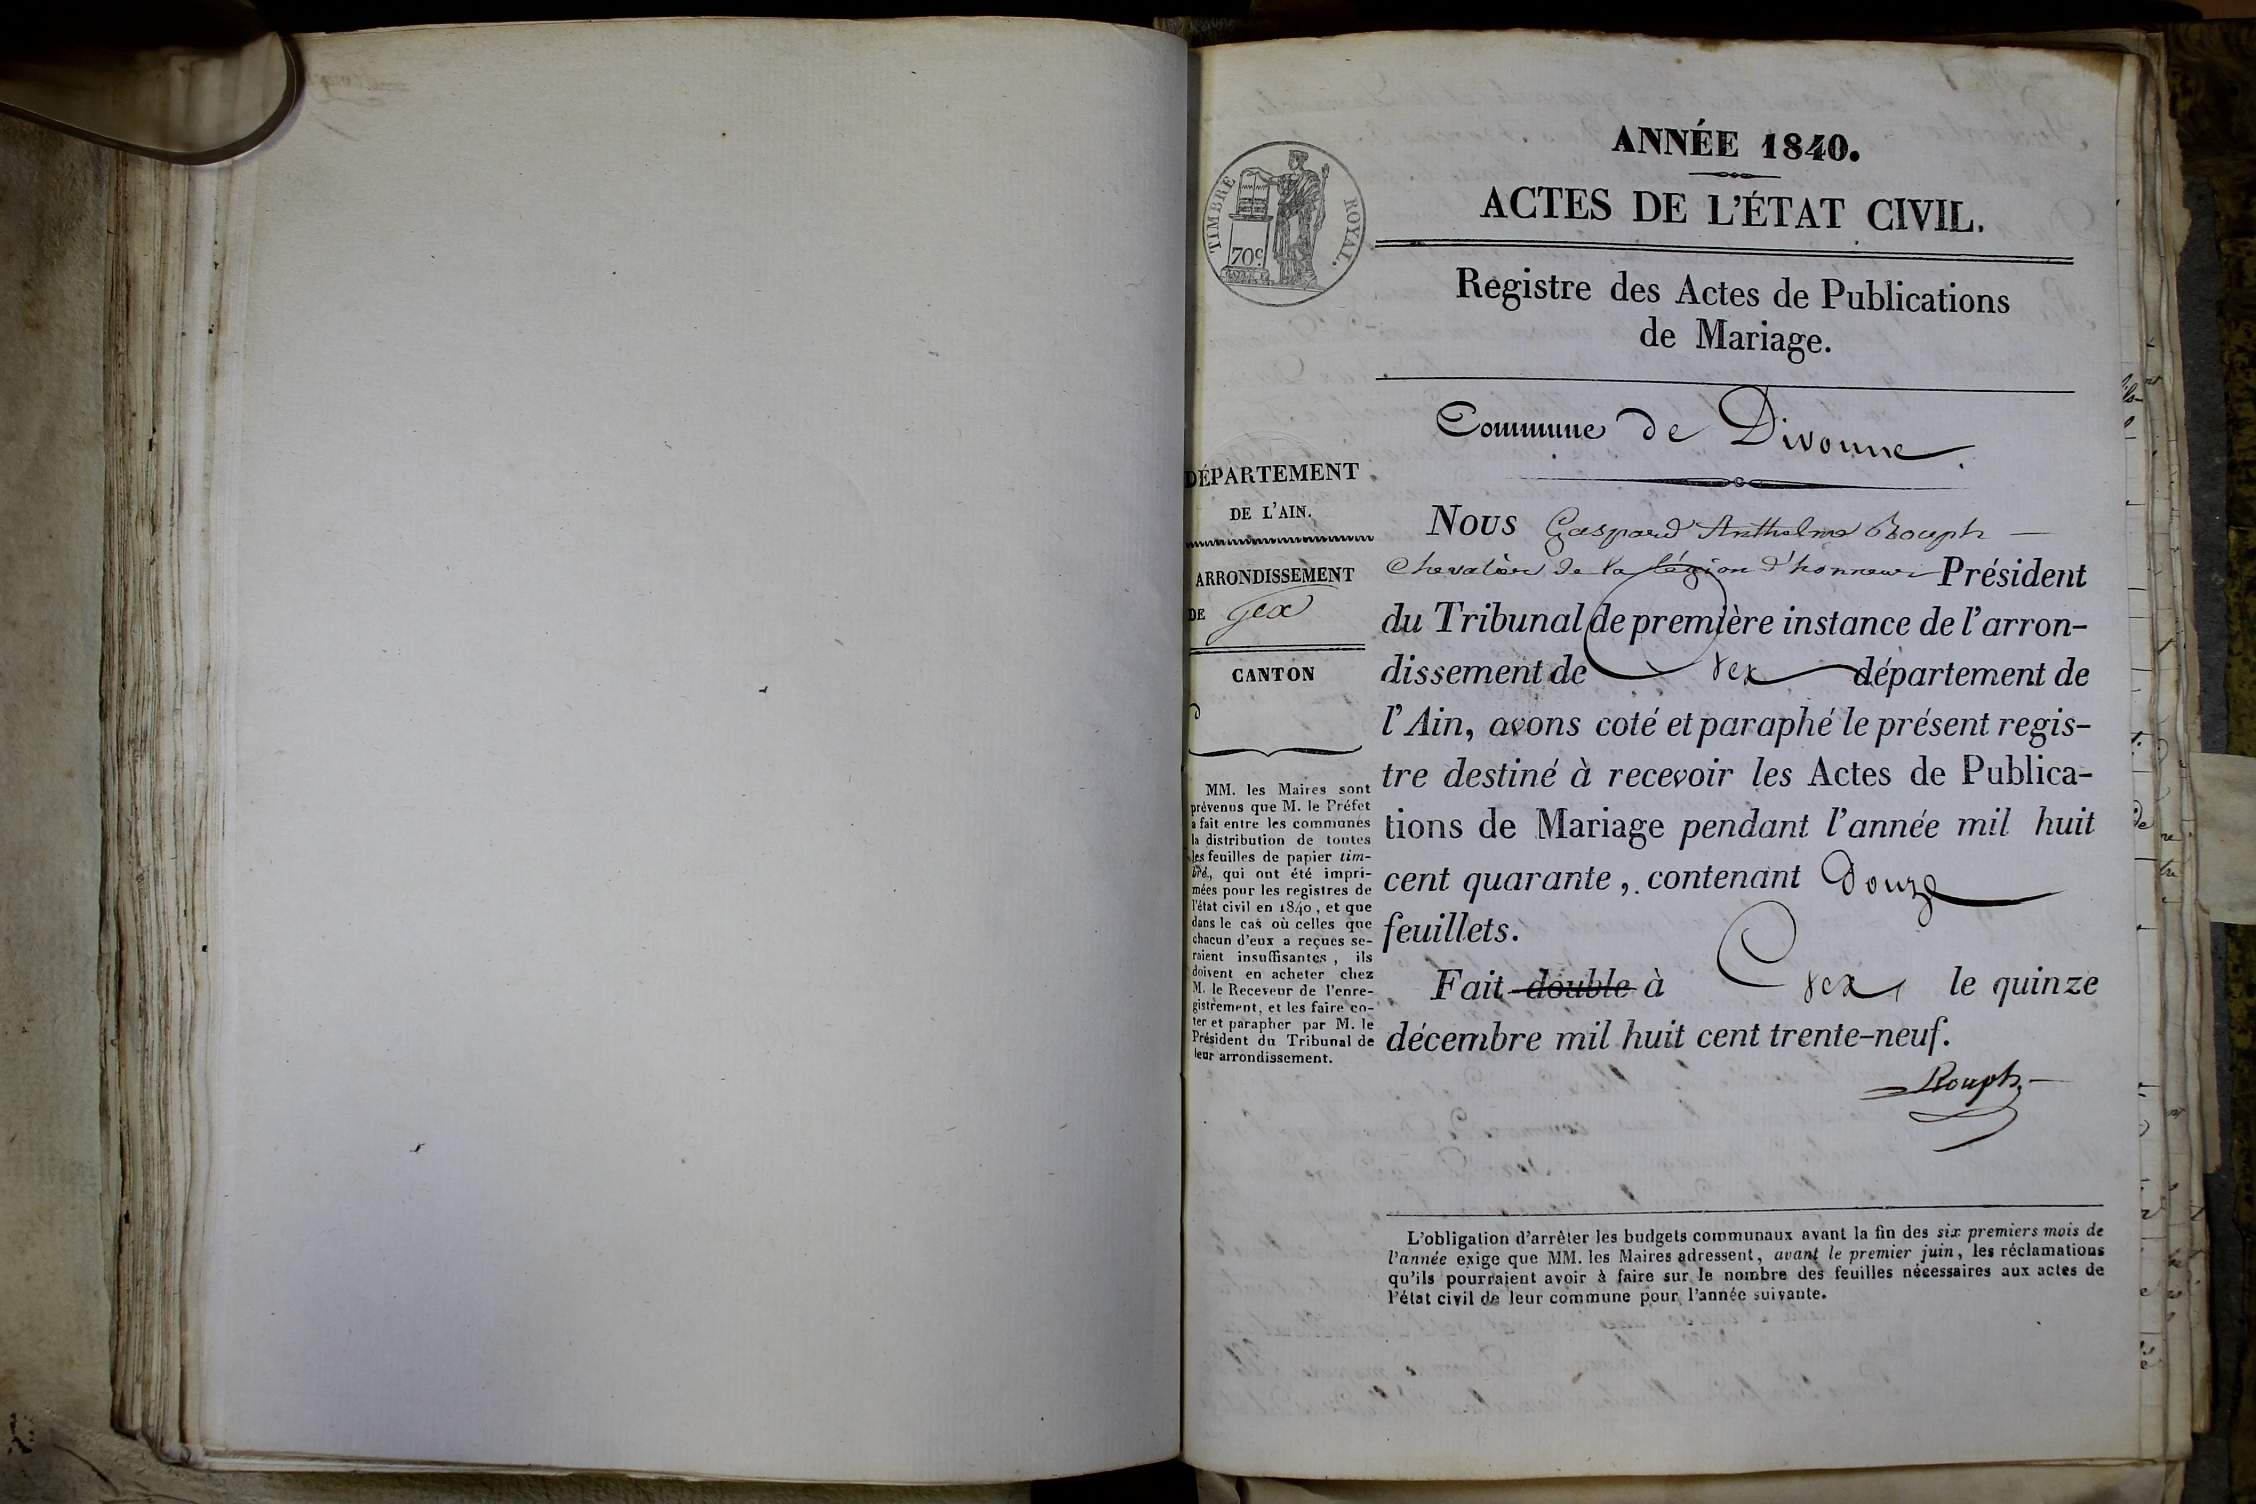 ANNÉE 1840.
ACTES DE L'ÉTAT CIVIL.
TIMBRE ROYAL.
70c
Registre des Actes de Publications
de Mariage.
Commune de Divonne
DÉPARTEMENT
DE L'AIN.
ARRONDISSEMENT
DE Gex
CANTON
MM. les Maires sont
prévenus que M. le Préfet
a fait entre les communes
la distribution de toutes
les feuilles de papier tim-
bré, qui ont été impri-
mées pour les registres de
l'état civil en 1840, et que
dans le cas où celles que
chacun d'eux a reçues se-
raient insuffisantes, ils
doivent en acheter chez
M. le Receveur de l'enre-
gistrement, et les faire co-
ter et parapher par M. le
Président du Tribunal de
leur arrondissement.
Nous Gaspard Anthelme Rouph
Chevalier de la légion d'honneur Président
du Tribunal de première instance de l'arron-
dissement de Gex département de
l'Ain, avons coté et paraphé le présent regis-
tre destiné à recevoir les Actes de Publica-
tions de Mariage pendant l'année mil huit
cent quarante, contenant Douze
feuillets.
Fait double à Gex, le quinze
décembre mil huit cent trente-neuf.
Rouph
L'obligation d'arrêter les budgets communaux avant la fin des six premiers mois de
l'année exige que MM. les Maires adressent, avant le premier juin, les réclamations
qu'ils pourraient avoir à faire sur le nombre des feuilles nécessaires aux actes de
l'état civil de leur commune pour l'année suivante.